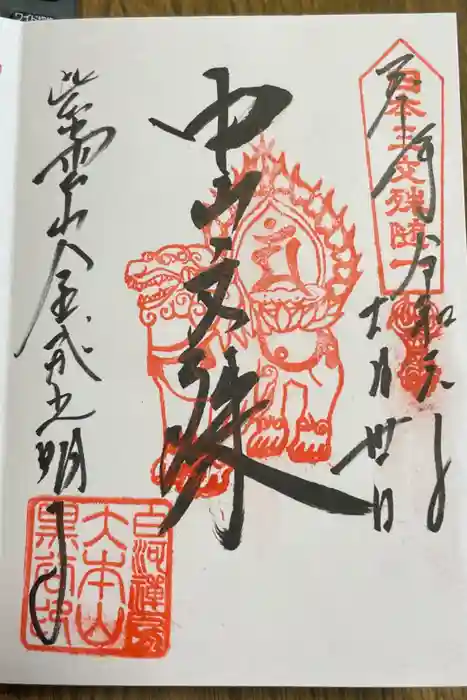 ワイド
日本三文殊随一
奉拝 令和元年
十月廿日
中山文殊
紫雲山金戒光明寺
白河禅房
大本山
黒谷